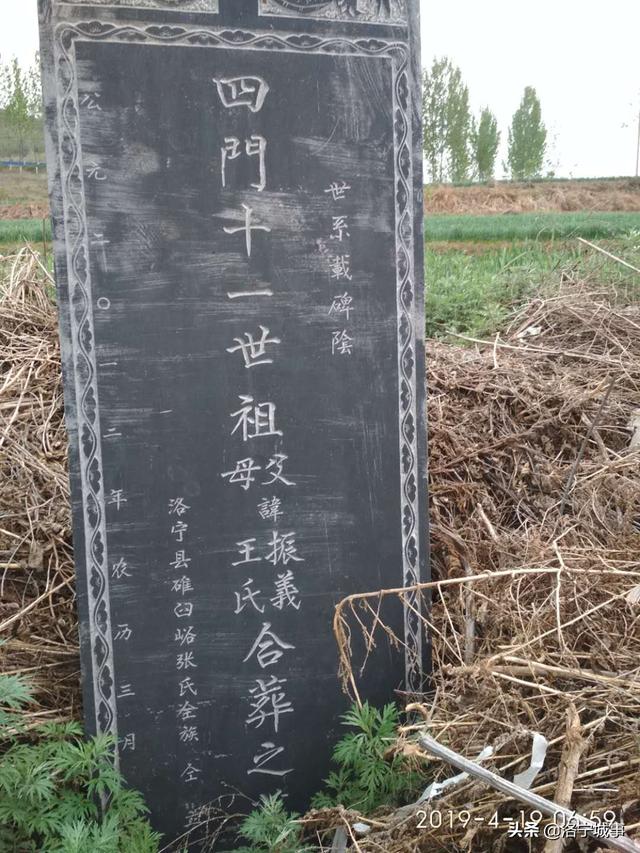 世系載碑陰
四門十一世祖父母諱振義王氏合葬之
洛宁县碓臼峪张氏全族 仝
公元二〇一二年农历三月
2019-4-19 06:59
头条 @洛宁城事